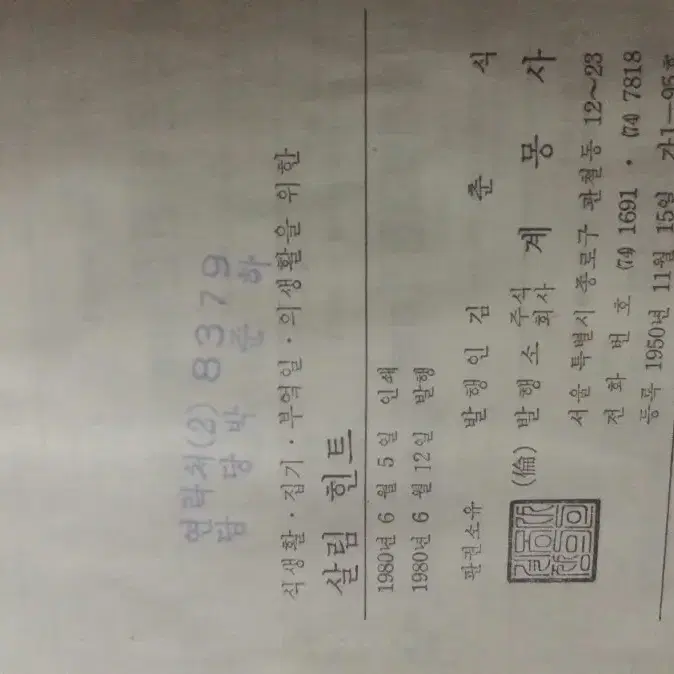 연락처(2) 8379
담당 박 준 하
식생활 · 집기 · 부엌일 · 의생활을 위한
살림 힌트
1980년 6월 5일 인쇄
1980년 6월 12일 발행
판권소유
발행인 김 춘 식
(倫) 발행소 주식회사 계몽사
서울 특별시 종로구 관철동 12~23
전화번호 (74) 1691 · (74) 7818
등록 1950년 11월 15일 가1-95호